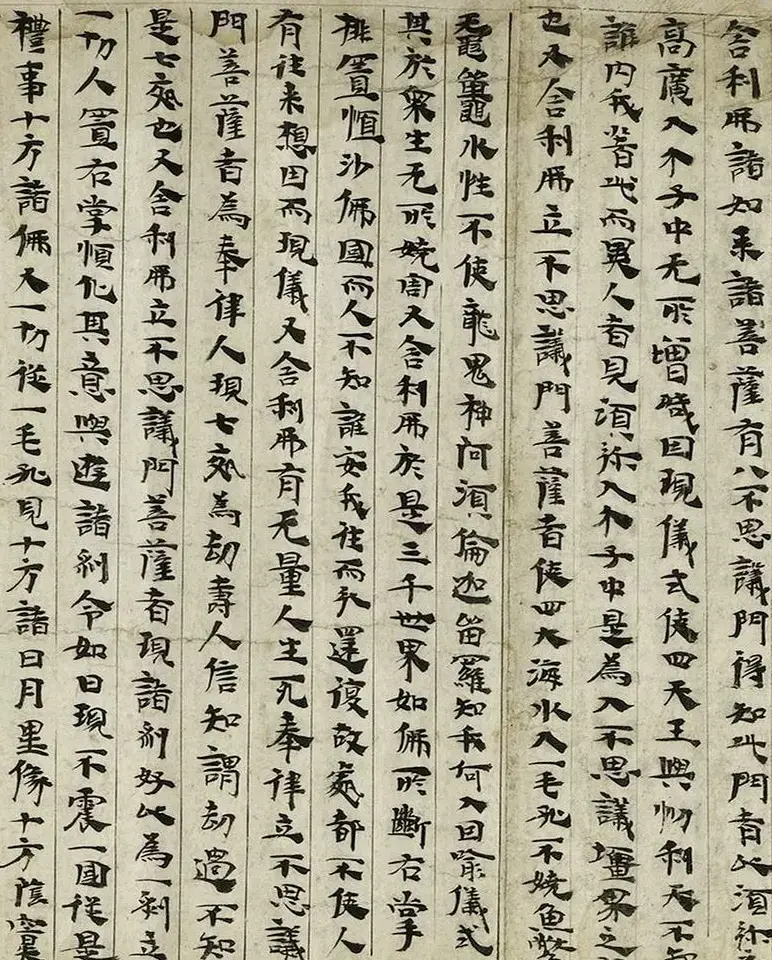 舍利弗諸如来諸菩薩有八不思議門得知此門者此須弥
高廣入芥子中无所增咸因現儀式使四天王與忉利天不知
誰内我著此而異人者見須弥入芥子中是為入不思議壃界之
也又舍利弗立不思議門菩薩者使四大海水入一毛孔不嬈魚
黿鼉水性不使龍鬼神阿須倫迦留羅知我何入因喻儀式
其於衆生无所嬈周又舍利弗於是三千世界如佛所斷右掌
排置恒沙佛國而人不知誰安我往而還復故處都不使人
有往来想因而現儀又舍利弗有无量人生死奉律立不思議
門菩薩者為奉律人現七夜為劫壽人信知謂劫過不知
是七夜也又舍利弗立不思議門菩薩者現諸刹好此為一刹立
一切人置右掌順化其意與遊諸刹令如日現不震一國從是
禮事十方諸佛又一切從一毛孔見十方諸日月星像十方陰冥